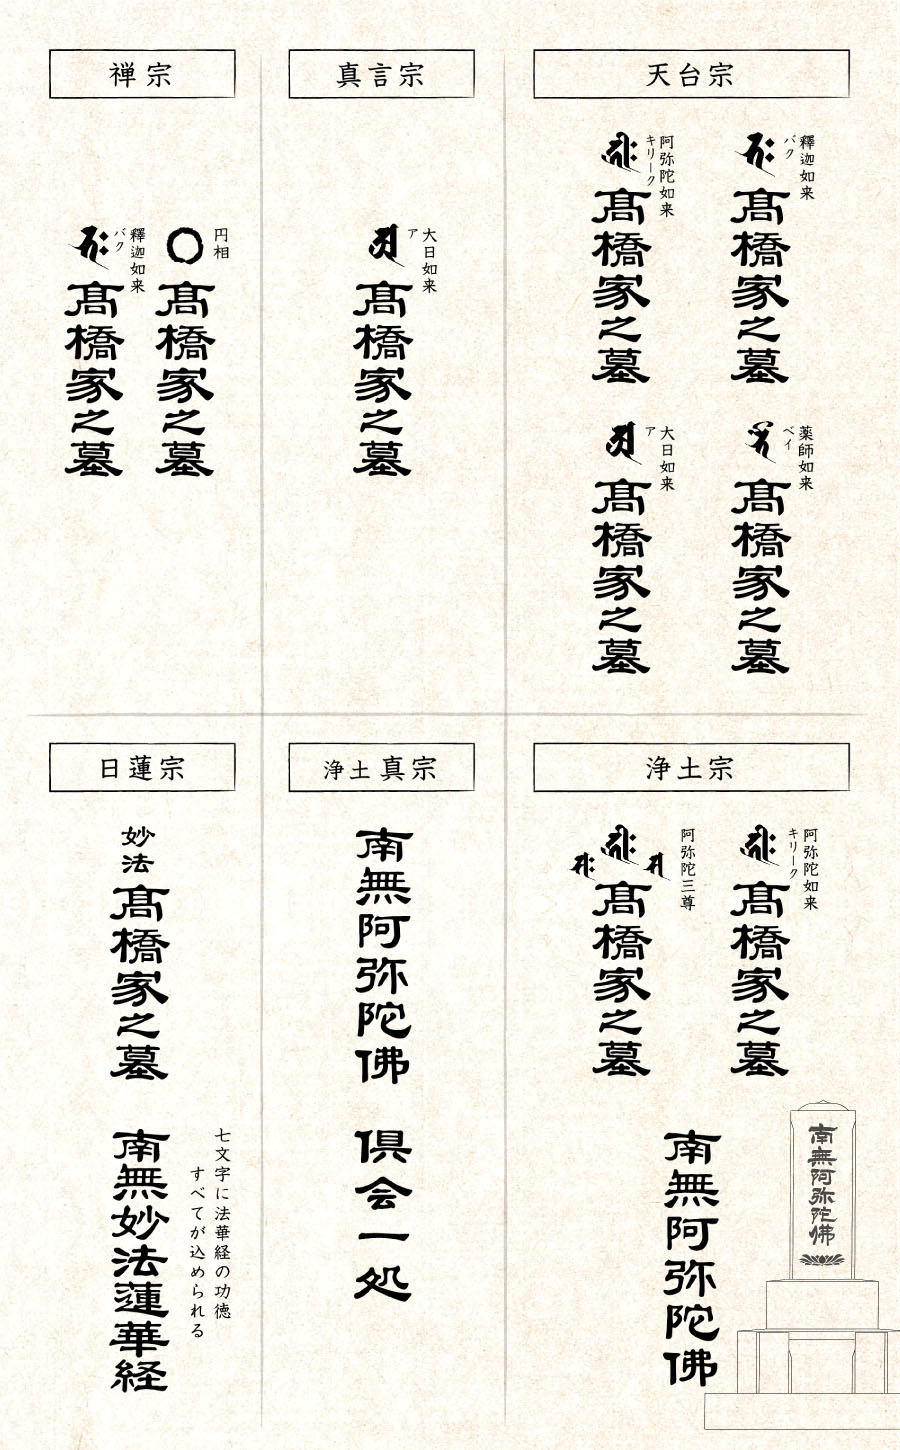 天台宗
釋迦如来
バク
髙橋家之墓
阿弥陀如来
キリーク
髙橋家之墓
薬師如来
ベイ
髙橋家之墓
大日如来
ア
髙橋家之墓
真言宗
大日如来
ア
髙橋家之墓
禅宗
円相
髙橋家之墓
釋迦如来
バク
髙橋家之墓
浄土宗
阿弥陀如来
キリーク
髙橋家之墓
阿弥陀三尊
髙橋家之墓
南無阿弥陀佛
南無阿弥陀佛
浄土真宗
南無阿弥陀佛
倶会一処
日蓮宗
妙法
髙橋家之墓
七文字に法華経の功徳
すべてが込められる
南無妙法蓮華経